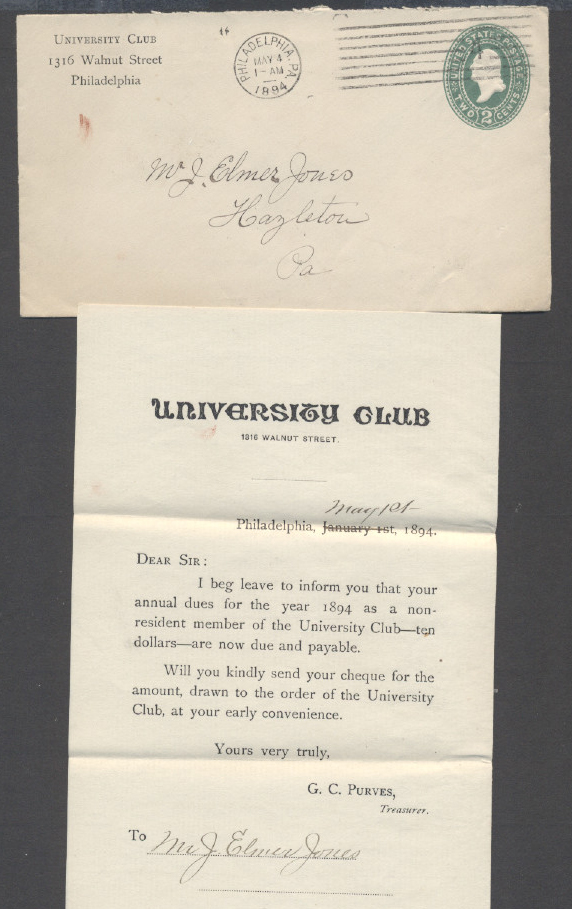 University Club
1316 Walnut Street
Philadelphia
PHILADELPHIA, PA.
MAY 4
1-AM
1894
UNITED STATES POSTAGE
2
TWO CENTS
Mr J. Elmer Jones
Hazleton
Pa
UNIVERSITY CLUB
1316 WALNUT STREET.
May 1st
Philadelphia, January 1st, 1894.
Dear Sir:
I beg leave to inform you that your
annual dues for the year 1894 as a non-
resident member of the University Club—ten
dollars—are now due and payable.
Will you kindly send your cheque for the
amount, drawn to the order of the University
Club, at your early convenience.
Yours very truly,
G. C. Purves,
Treasurer.
To Mr J Elmer Jones